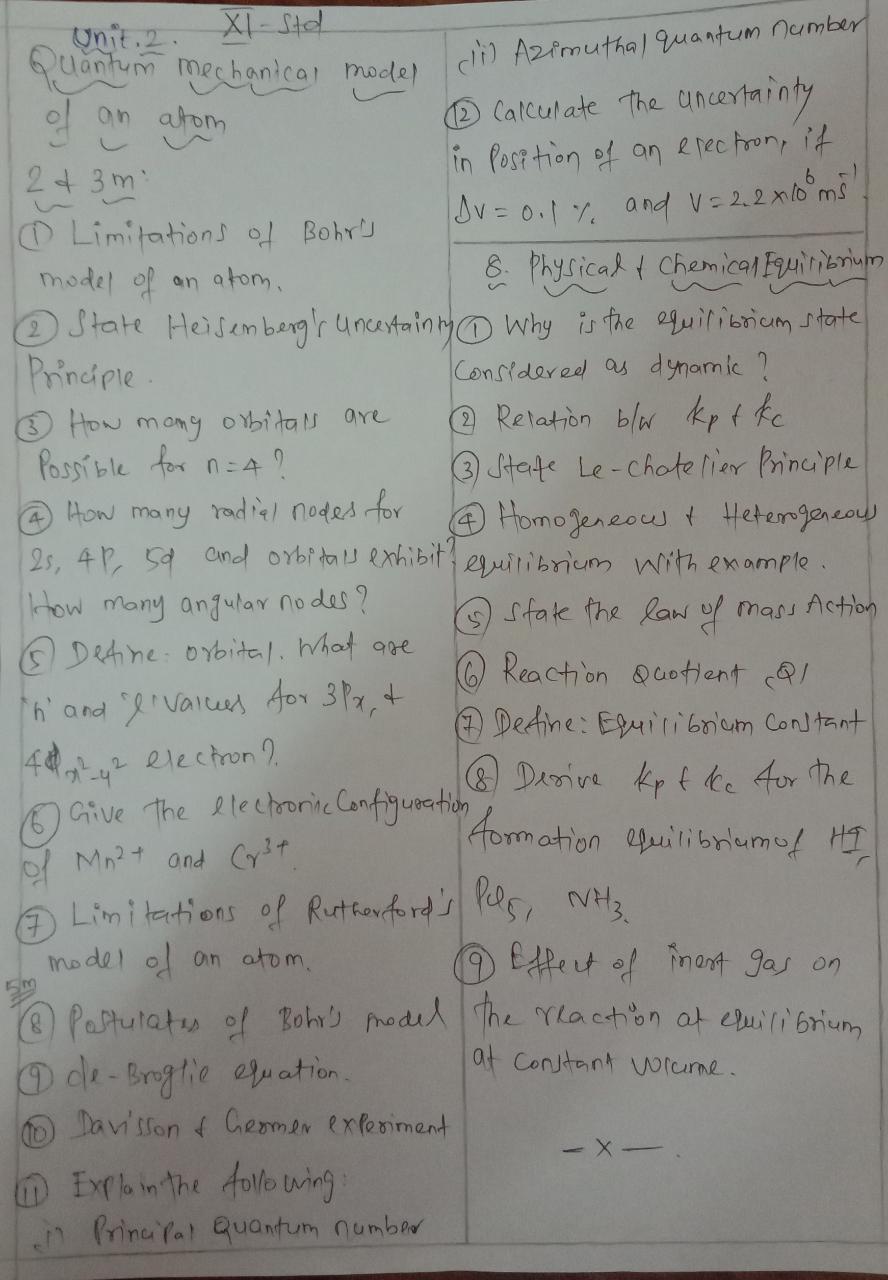 XI - Std
Unit. 2.
Quantum mechanical model
of an atom
2 & 3m:
① Limitations of Bohr's
model of an atom.
② State Heisemberg's Uncertainty
Principle.
③ How many orbitals are
Possible for n=4?
④ How many radial nodes for
2s, 4P, 5d and orbitals exhibit?
How many angular nodes?
⑤ Define: orbital. What are
'n' and 'l' values for 3Px, &
4dx²-y² electron?
⑥ Give the electronic Configuration
of Mn2+ and Cr3+.
⑦ Limitations of Rutherford's
model of an atom.
5m
⑧ Postulates of Bohr's model
⑨ de-Broglie equation.
⑩ Davisson & Germer experiment
⑪ Explain the following:
i) Principal Quantum number
(ii) Azimuthal quantum number
⑫ Calculate the uncertainty
in Position of an electron, if
Δv = 0.1 % and v = 2.2x10⁶ ms⁻¹.
8. Physical & Chemical Equilibrium
① Why is the equilibrium state
Considered as dynamic?
② Relation b/w kp & kc
③ State Le-Chatelier Principle
④ Homogeneous & Heterogeneous
equilibrium With example.
⑤ State the law of mass Action
⑥ Reaction Quotient (Q)
⑦ Define: Equilibrium Constant
⑧ Derive kp & kc for the
formation equilibrium of HI,
PCl5, NH3.
⑨ Effect of inert gas on
the reaction at equilibrium
at Constant volume.
- x -.